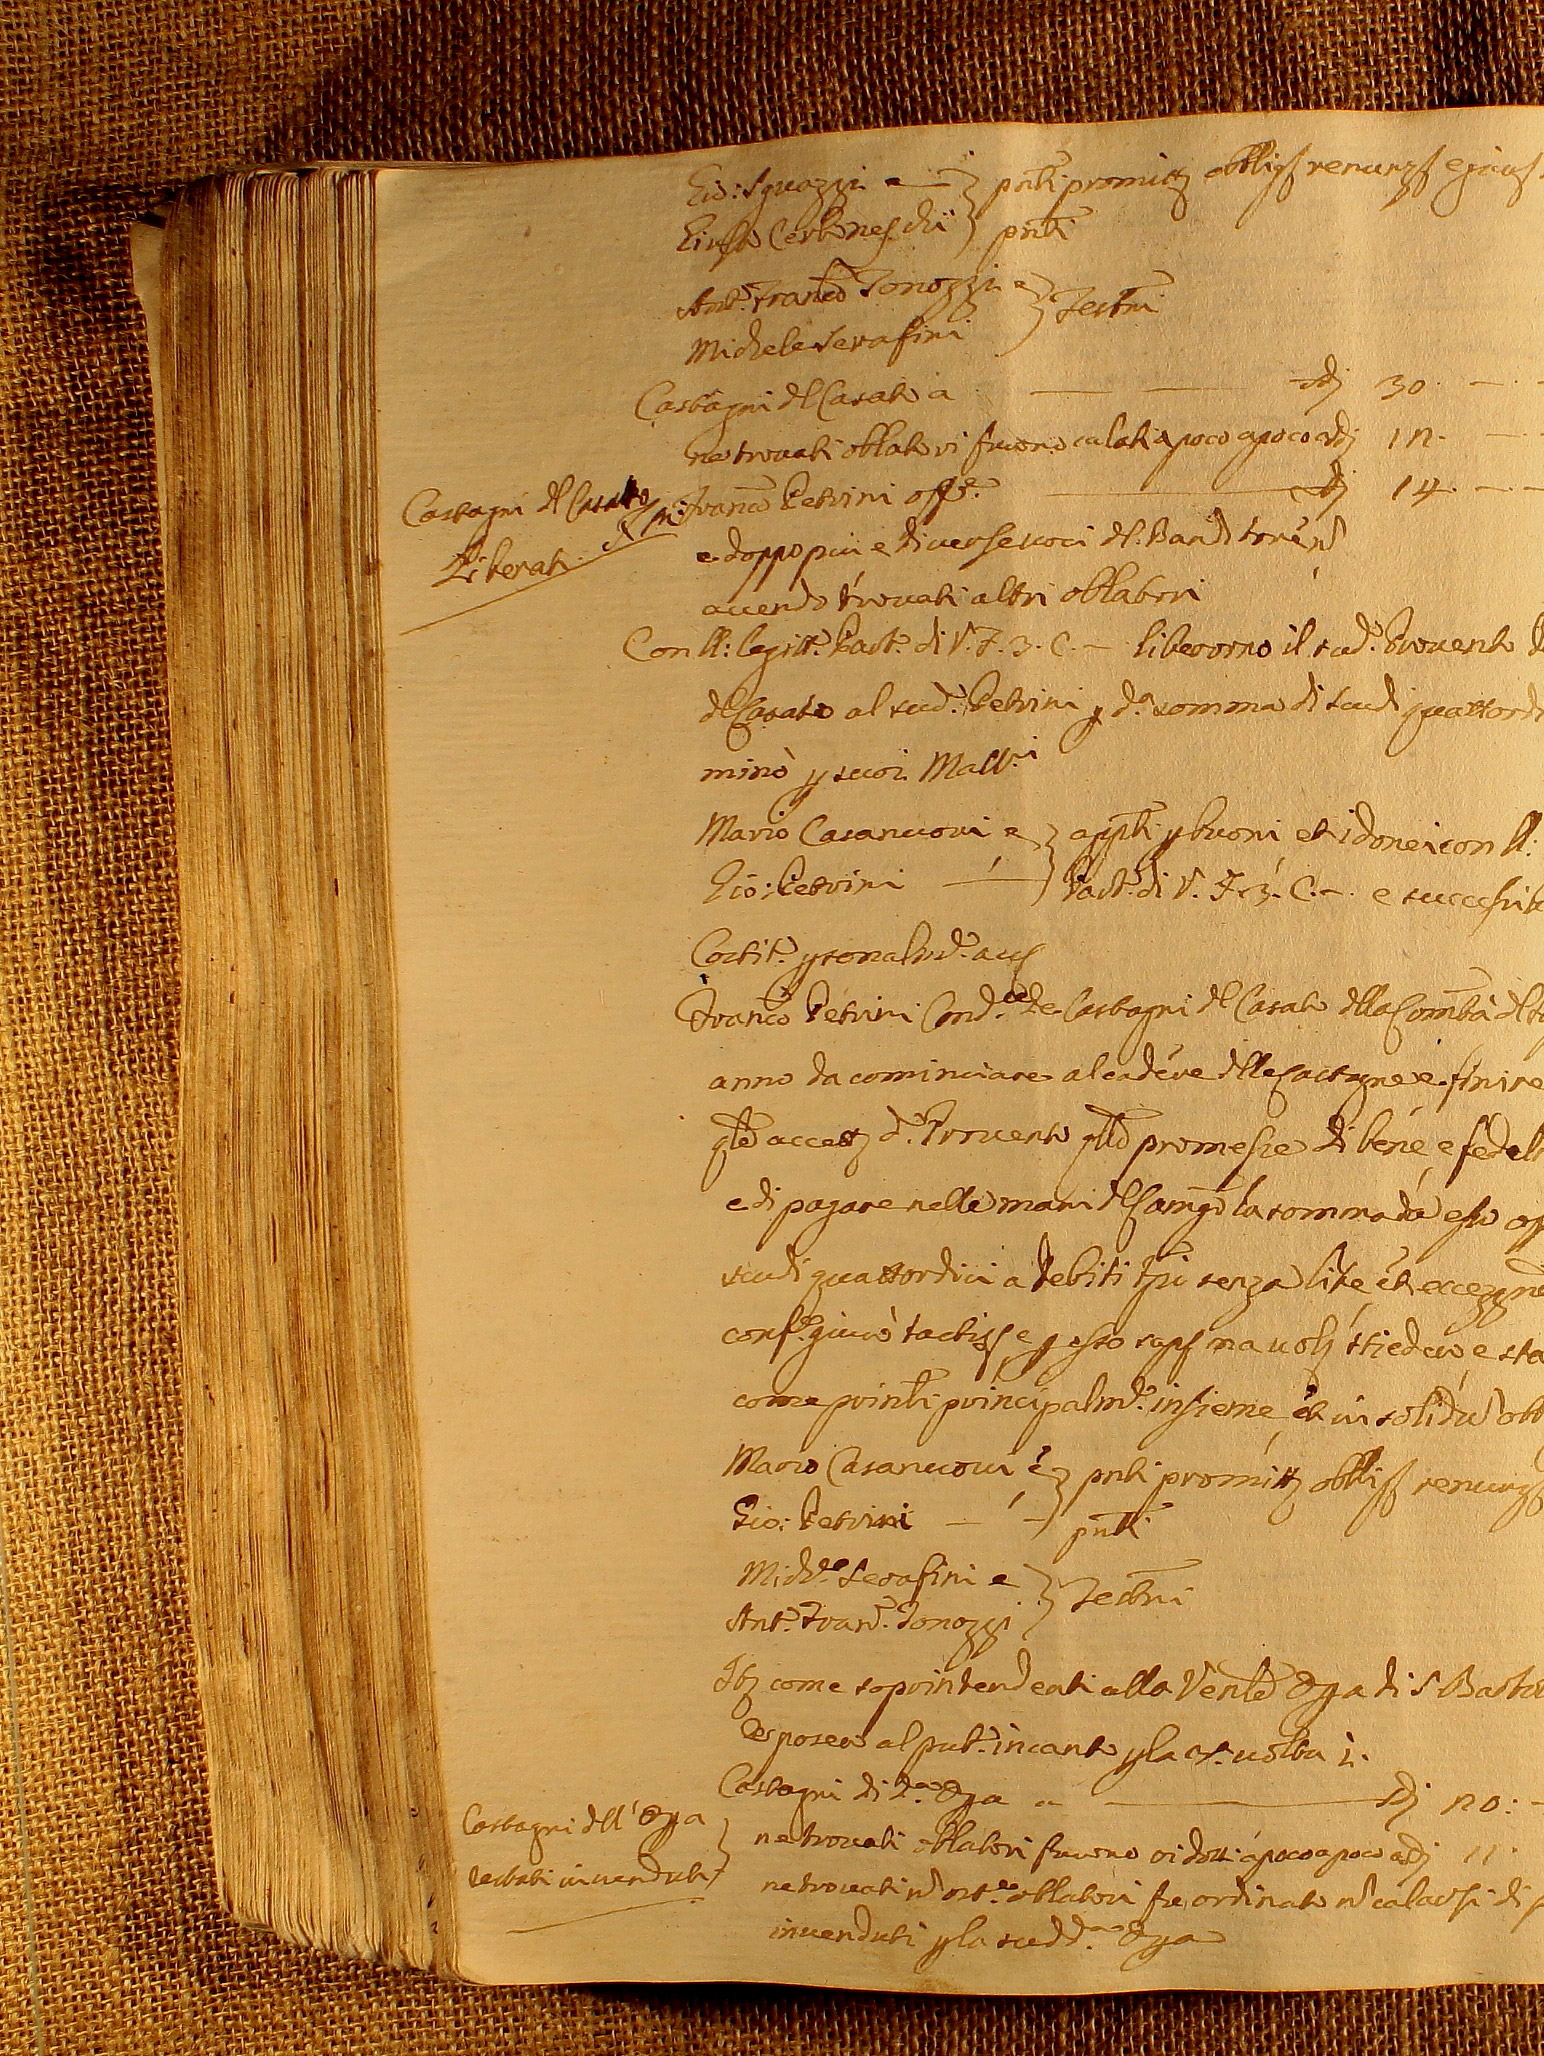 Gio: Sguazzi e — } pnti promitt obbligh renunz e
Cerboneschi } pnti
Ant.º Franco Tonozzi e } Testni
Michele Serafini
Castagni dl Casato a — sdi 30. —
ne trovati oblatori furono calati a poco a poco a sdi 12. —
Castagni dl Casato
Liberati
Franco Petrini offe. — sdi 14. —
e doppo piu e diverse voci dl. Banditore nō
avendo trovati altri oblatori
Con ll: legitt. Part. di V. F. 3. C. — liberorno il sud.º Provento
dl Casato al sud.º Petrini p d.ª somma di scudi quattordi
minò p suoi Mallri
Mario Casanuovi e } appti p buoni et idonei con ll:
Gio: Petrini — } Part. di V. F. 3. C. — e
Costit.º psonalmt.e
Franco Petrini Cond.re de Castagni dl Casato dlla Comtà dl
anno da cominciare al cadere dlle Castagne e finire
qle accett d.º Provento qle promesse di bene e fedel
e di pagare nelle mani dl Camgo la somma da esso
scudi quattordici a debiti tpi senza lite et eccezzne
conf.e giurò e p esso volj stiedero e sta
come prinli principalmt.e insieme et in solidu obb
Mario Casanuovi e } pnti promitt obbligh renunz
Gio: Petrini — } pnti
Mich.e Serafini e } Testni
Ant.º Franc.º Tonozzi
Itz come soprintendenti alla Venle Opa di S Barto
Esposero al pub.º incanto p la volta 1.
Castagni di d.ª Opa a — sdi 20: —
Castagni dll' Opa
restati invenduti
ne trovati oblatori furono ridotti a poco a poco a sdi 11.
ne trovati nō oblatori fu ordinato nō calarsi di p
invenduti p la sudd.ª Opa